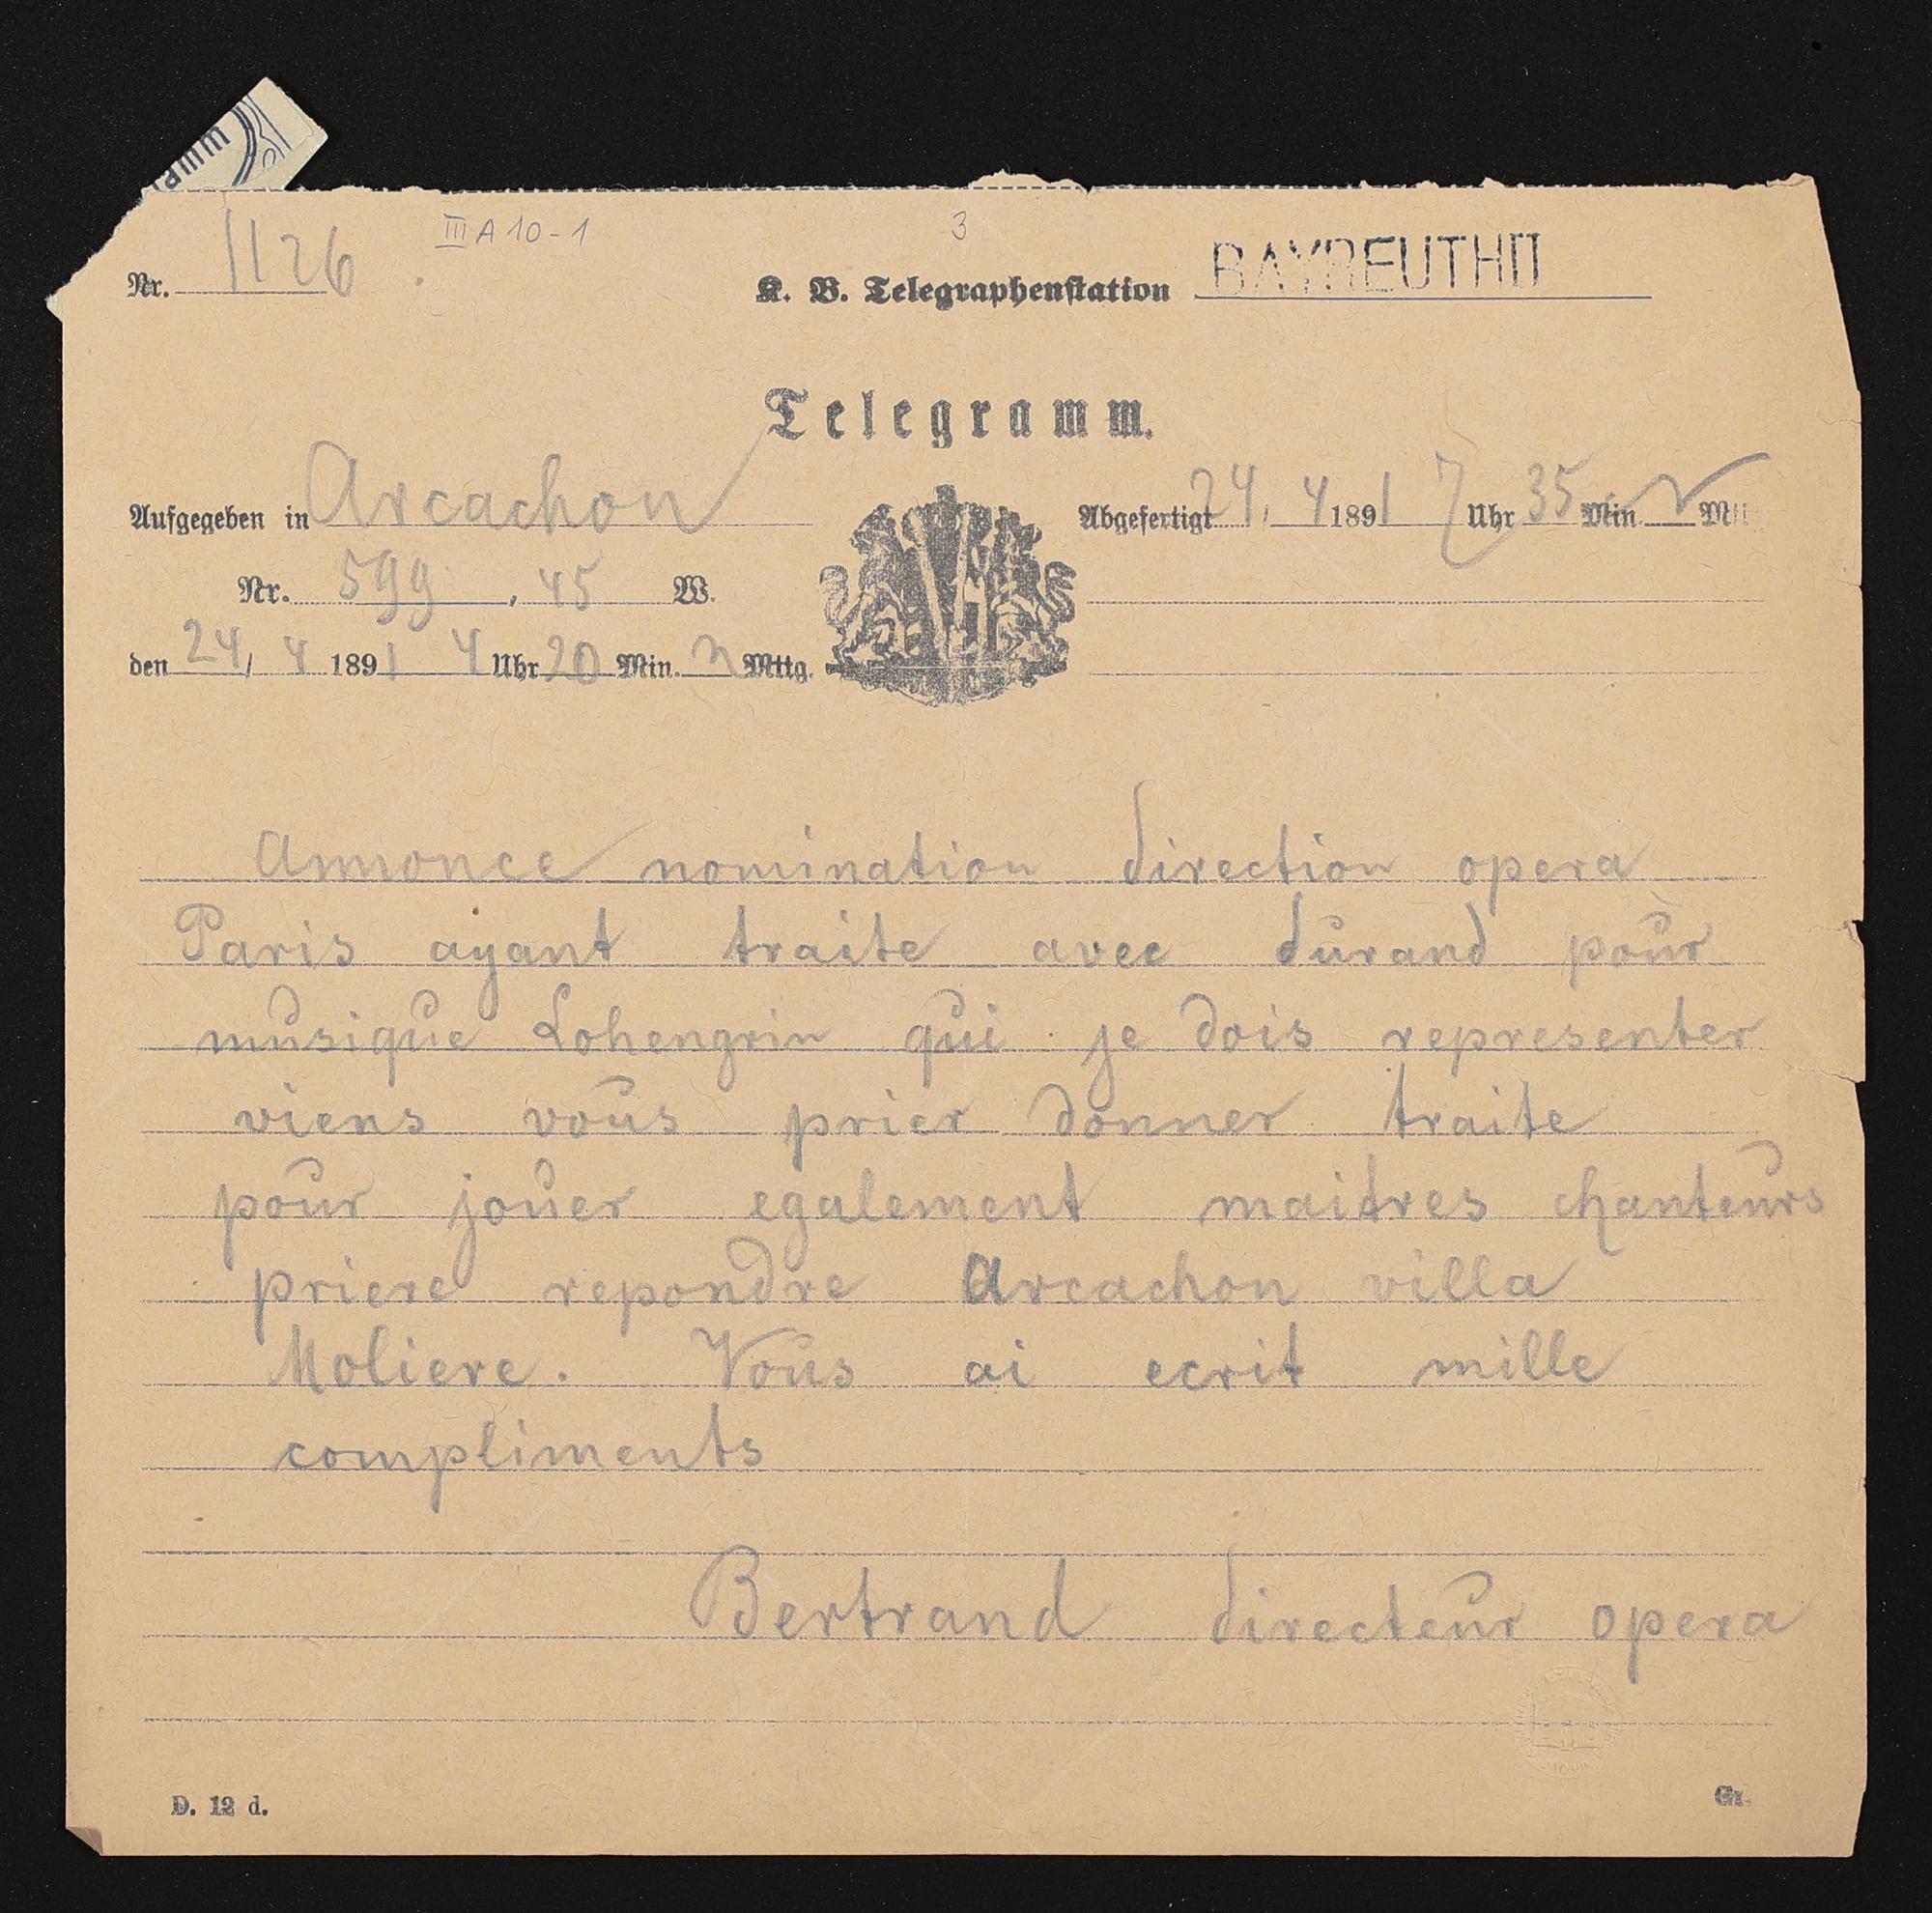 amm
Nr. 1126
III A 10-1
3
K. B. Telegraphenstation BAYREUTH II
Telegramm.
Aufgegeben in Arcachon
Abgefertigt 24. 4 1891 7 Uhr 35 Min N Mtt
Nr. 599, 45 W.
den 24/4 1891 4 Uhr 20 Min. N Mttg.
Annonce nomination direction opera
Paris ayant traite avec durand pour
musique Lohengrin qui je dois representer
viens vous prier donner traite
pour jouer egalement maitres chanteurs
priere repondre Arcachon villa
Moliere. Vous ai ecrit mille
compliments
Bertrand directeur opera
D. 12 d.
Gr.